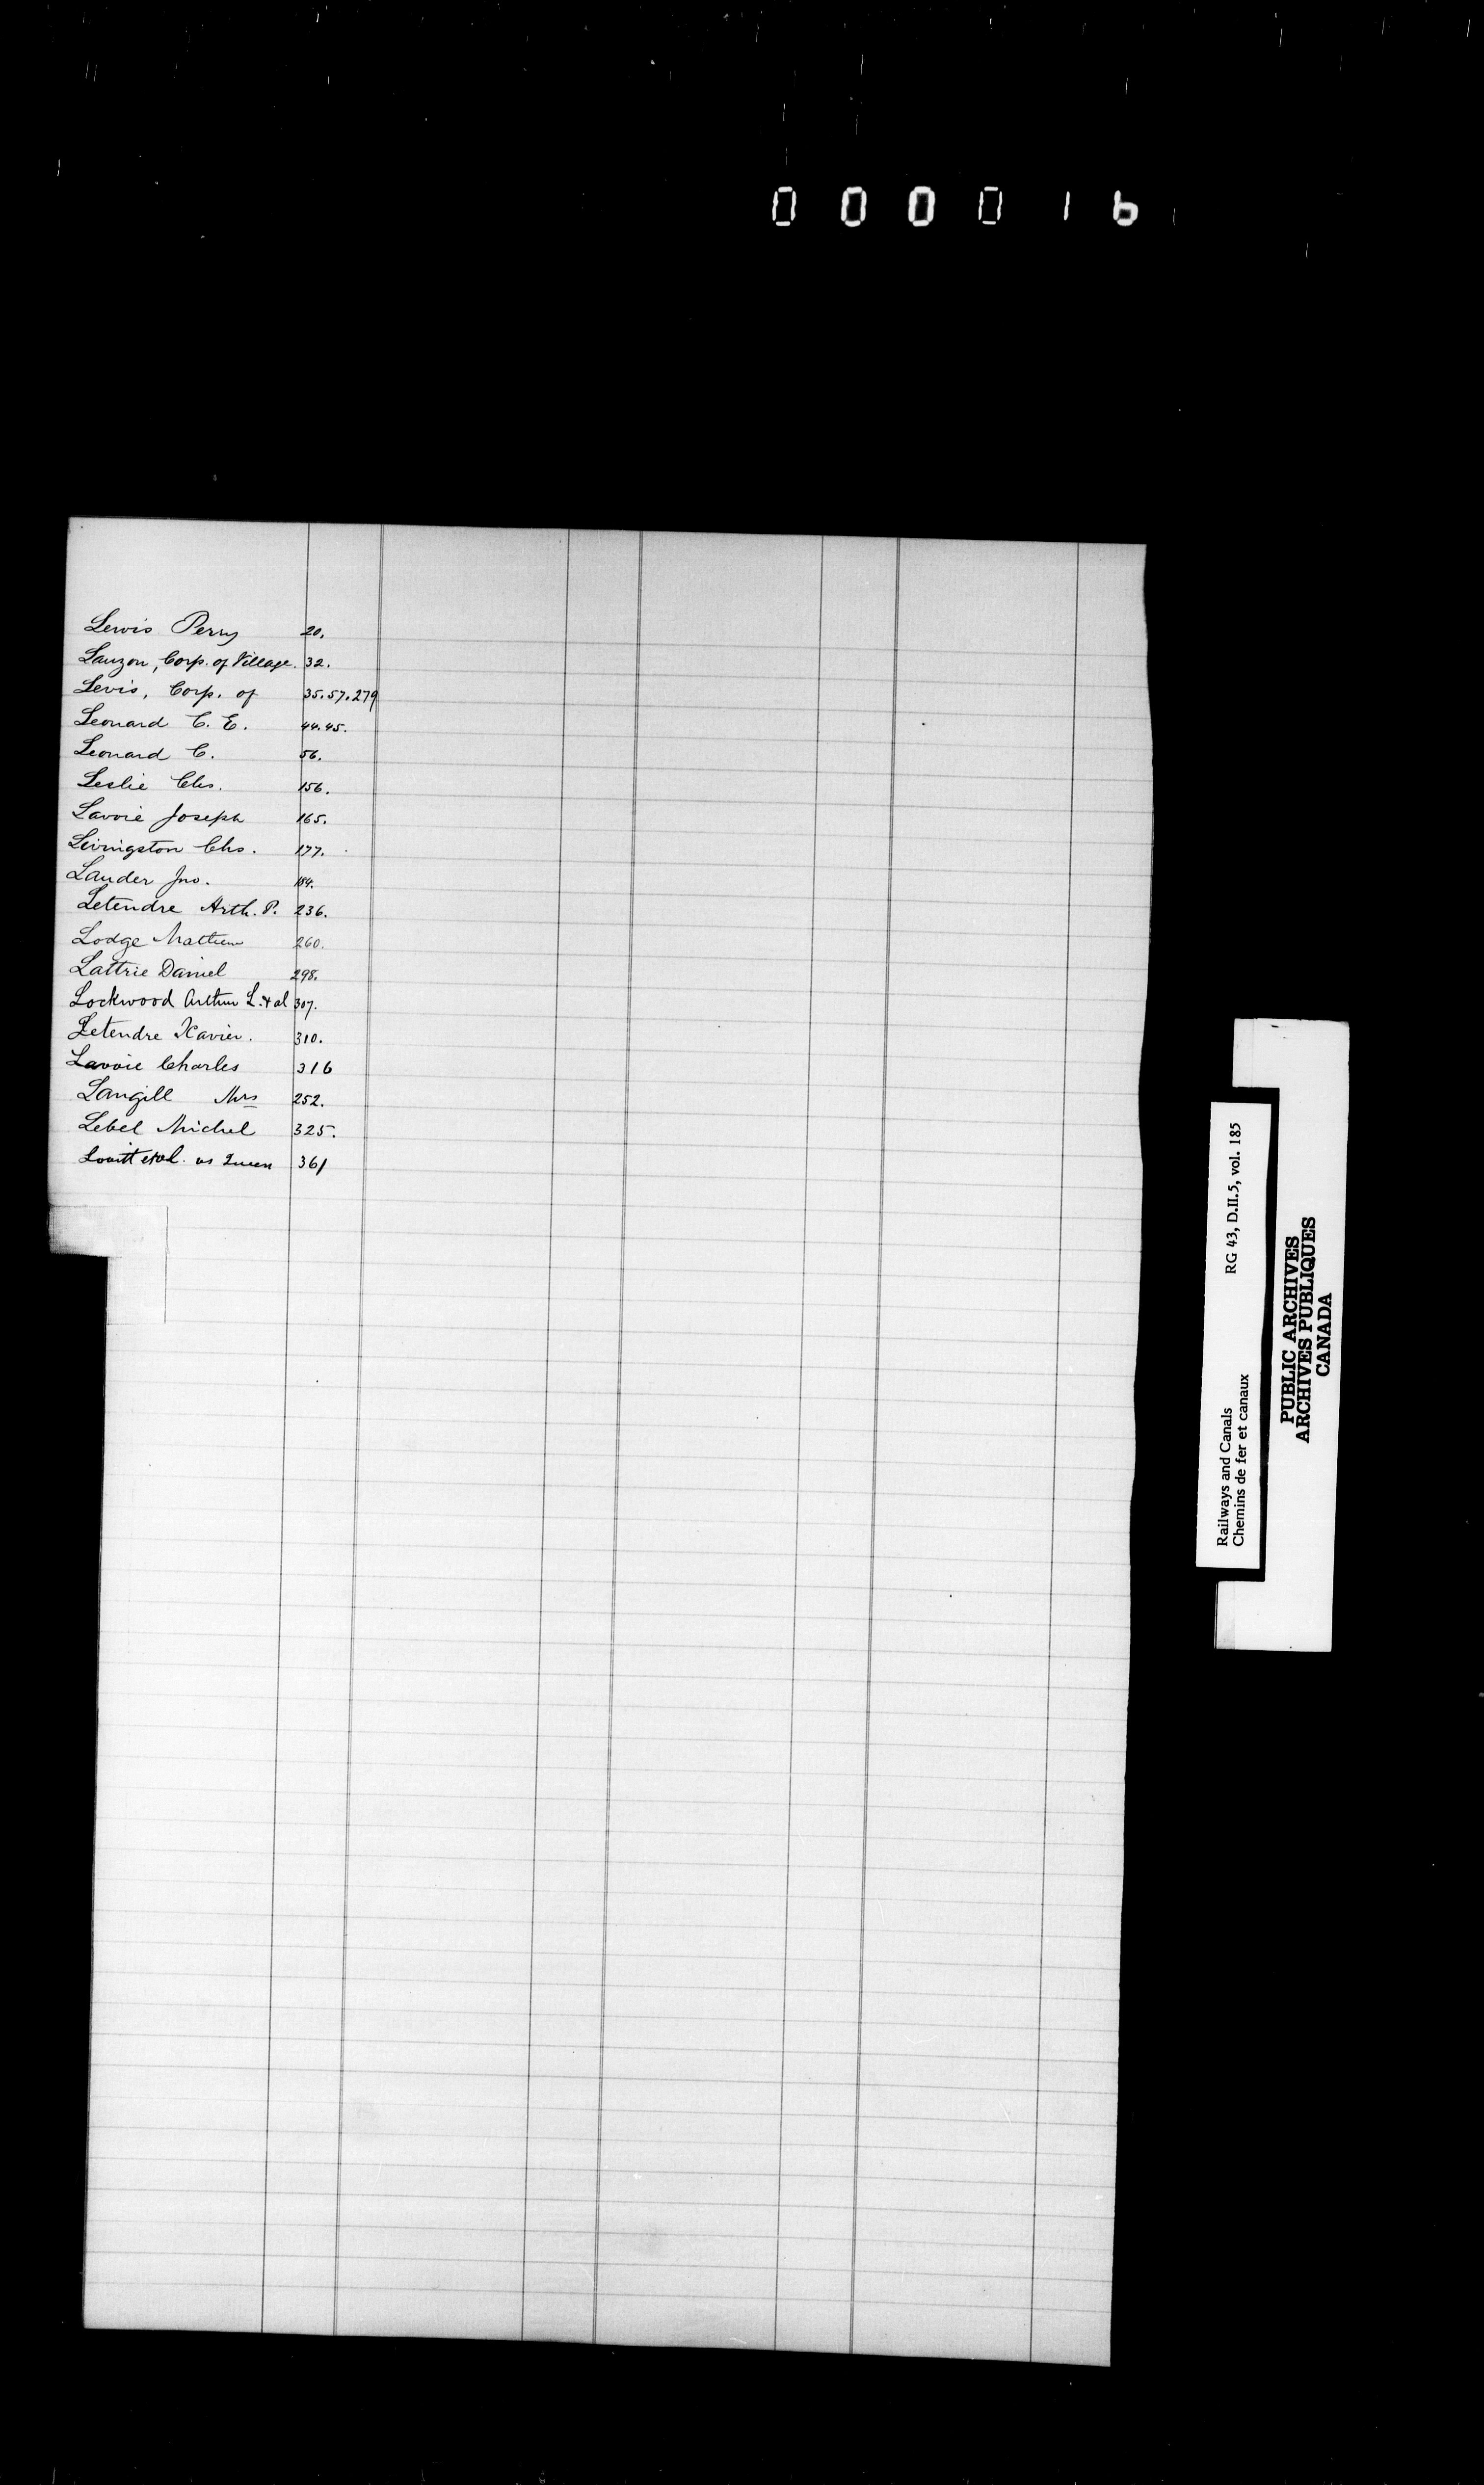 000016
Lewis Perry 20.
Lauzon, Corp. of Village. 32.
Levis, Corp. of 35.57.279
Leonard C. E. 44.45.
Leonard C. 56.
Leslie Chs. 156.
Lavoie Joseph 165.
Livingston Chs. 177.
Lauder Jno. 184.
Letendre Arth. P. 236.
Lodge Mathew 260.
Lattrie Daniel 298.
Lockwood Arthur L. & al 307.
Letendre Xavier. 310.
Lavoie Charles 316
Langill Mrs 252.
Lebel Michel 325.
Lovitt et al. vs Queen 361
Railways and Canals RG 43, D.II.5, vol. 185
Chemins de fer et canaux
PUBLIC ARCHIVES
ARCHIVES PUBLIQUES
CANADA